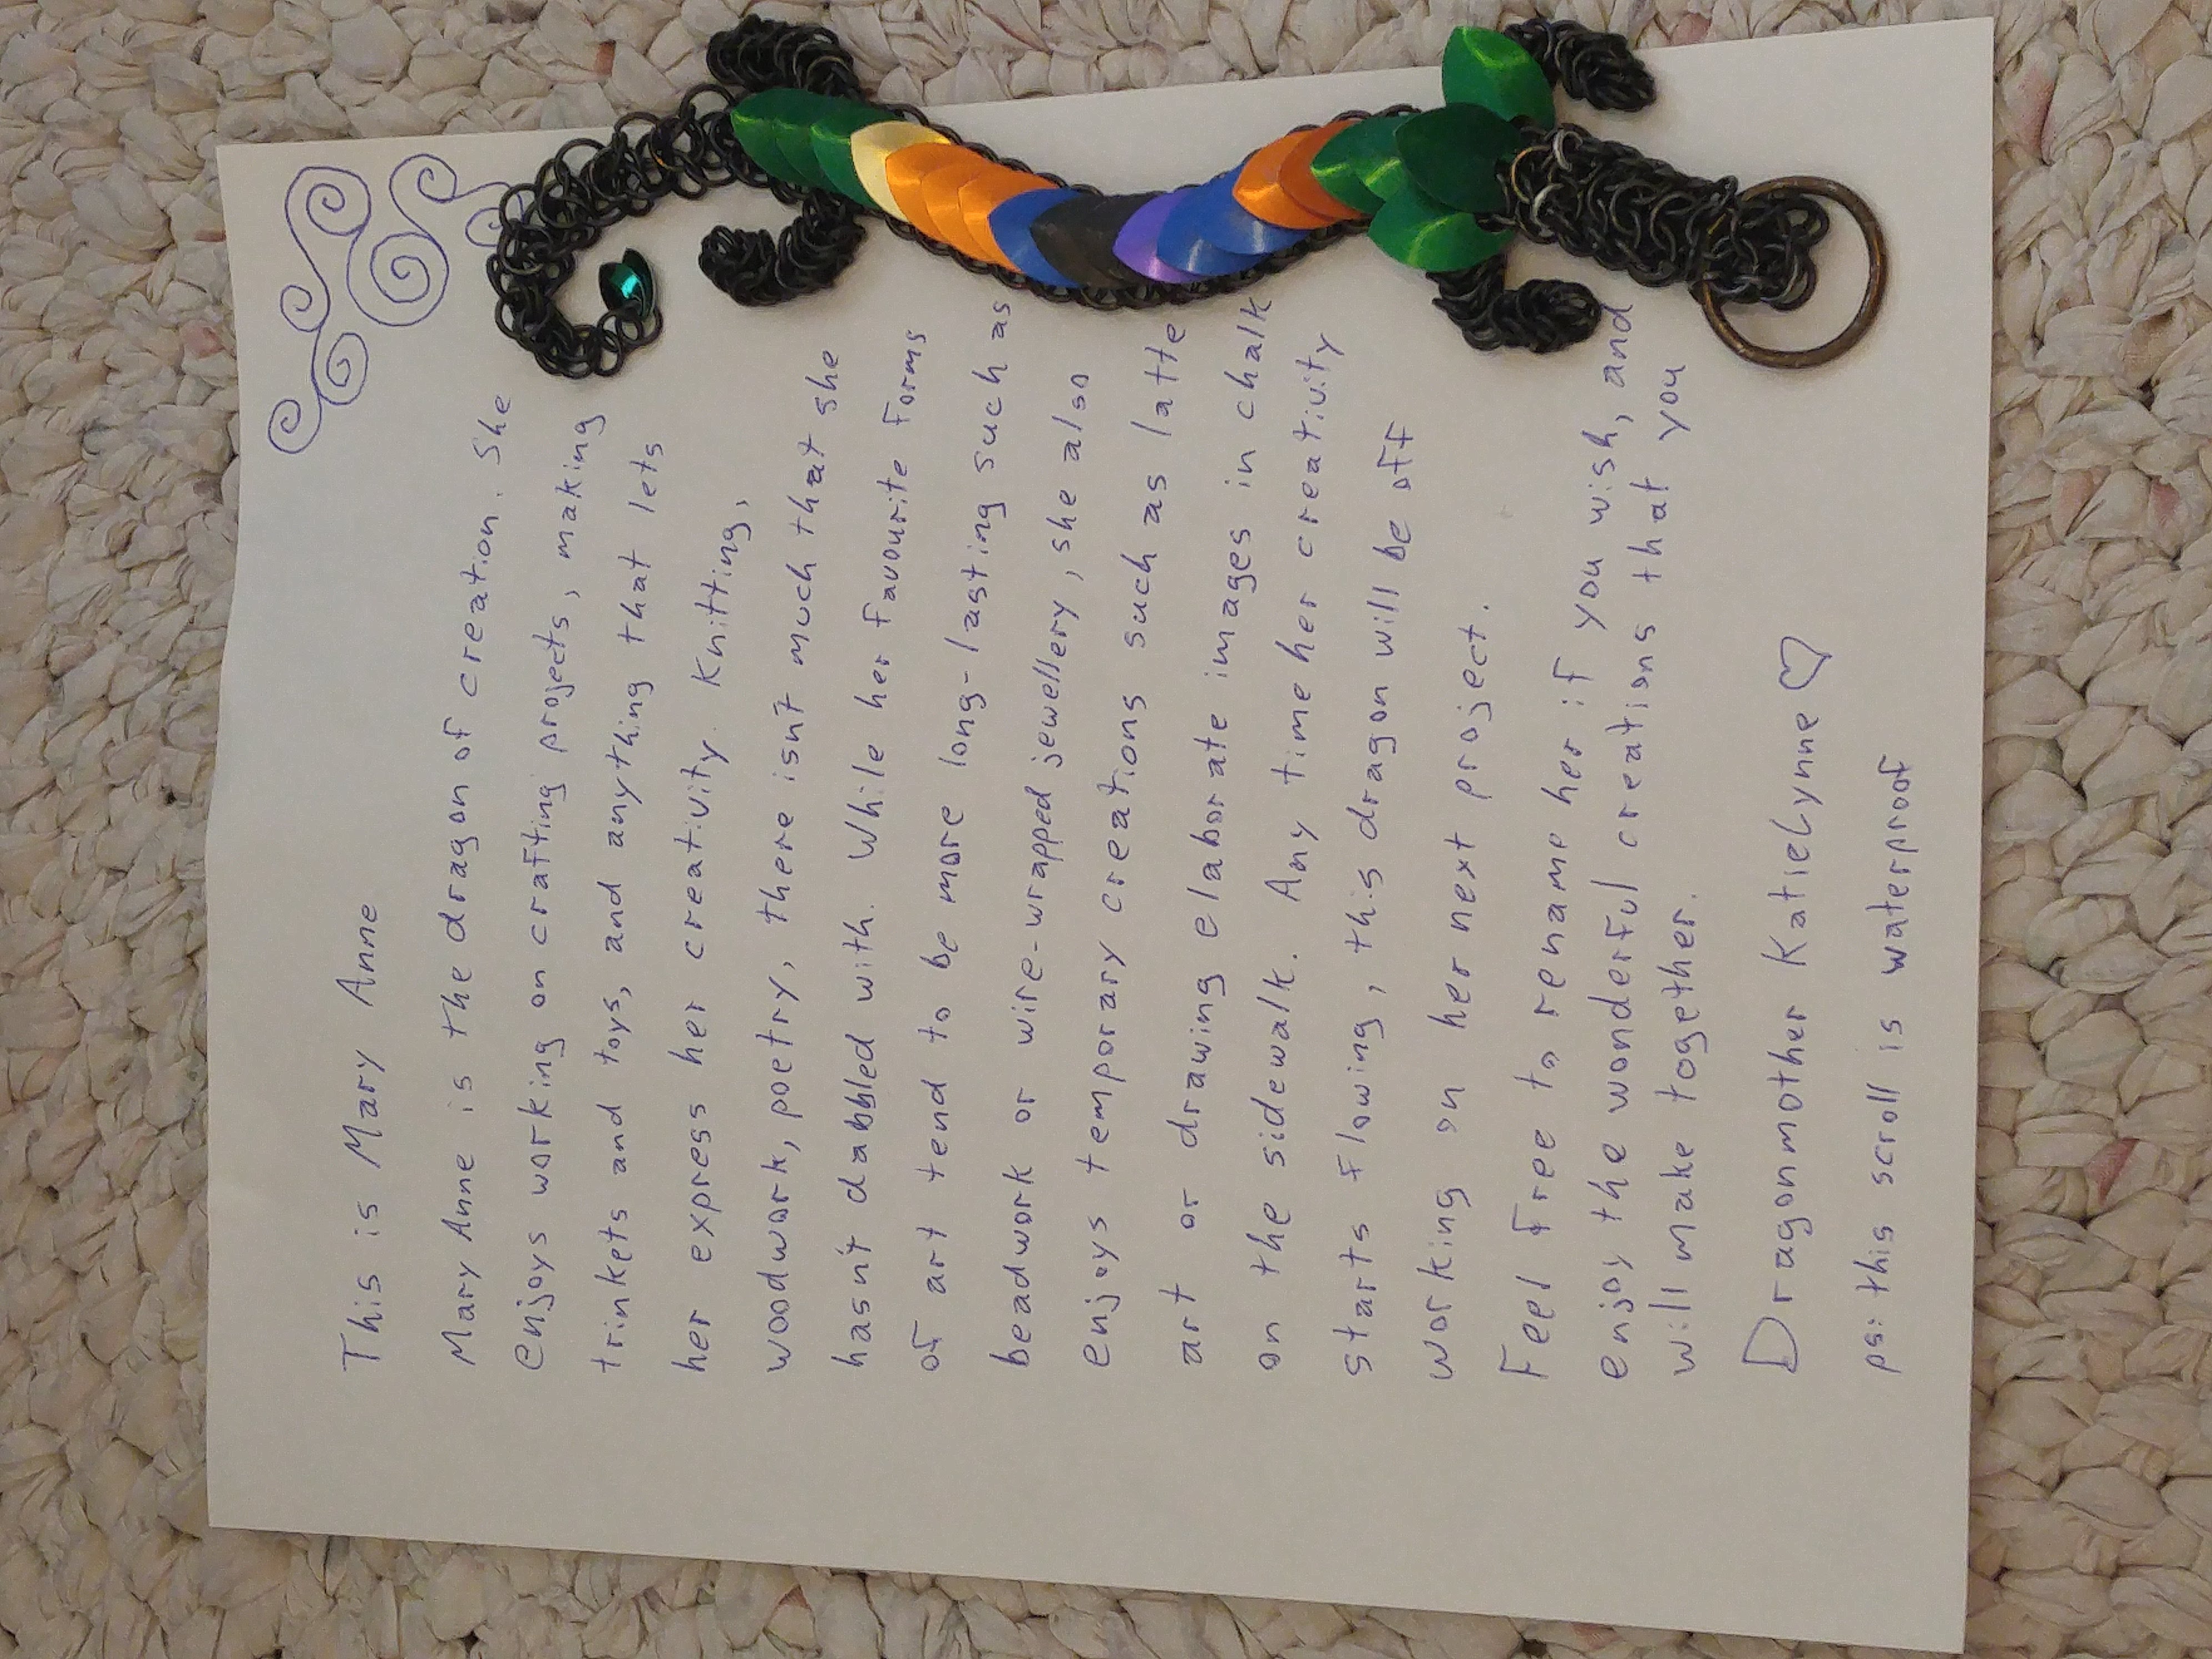 This is Mary Anne
Mary Anne is the dragon of creation. She
enjoys working on crafting projects, making
trinkets and toys, and anything that lets
her express her creativity. Knitting,
woodwork, poetry, there isn't much that she
hasn't dabbled with. While her favourite forms
of art tend to be more long-lasting such as
beadwork or wire-wrapped jewellery, she also
enjoys temporary creations such as latte
art or drawing elaborate images in chalk
on the sidewalk. Any time her creativity
starts flowing, this dragon will be off
working on her next project.
Feel free to rename her if you wish, and
enjoy the wonderful creations that you
will make together.
Dragonmother KatieLynne ♡
ps: this scroll is waterproof